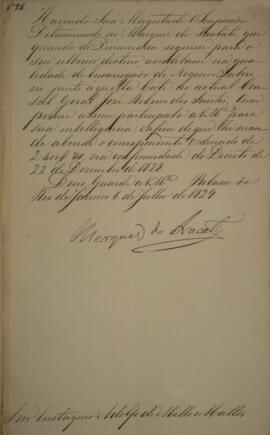 Havendo Sua Magestade O Imperador
Determinado ao Marquez de
que
quando de Dinamarca seguisse para o
seu ulterior destino acreditasse na qua-
lidade de Encarregado de Negocios Interi-
no junto aquella Corte ao actual Con-
sul Geral José Ribeiro dos Santos, cum-
pre-me assim participa-lo a V. Mce para
sua intelligencia, e afim de que lhe man-
de abonar o competente ordenado de
2:400$ rs, na conformidade do Decreto de
22 de Dezembro de 1828.
Deus Guarde a V. Mce Palacio do
Rio de Janeiro 6 de Julho de 1829
Marquez do Aracaty
Snr. Eustaquio Adolfo de Mello e Mattos